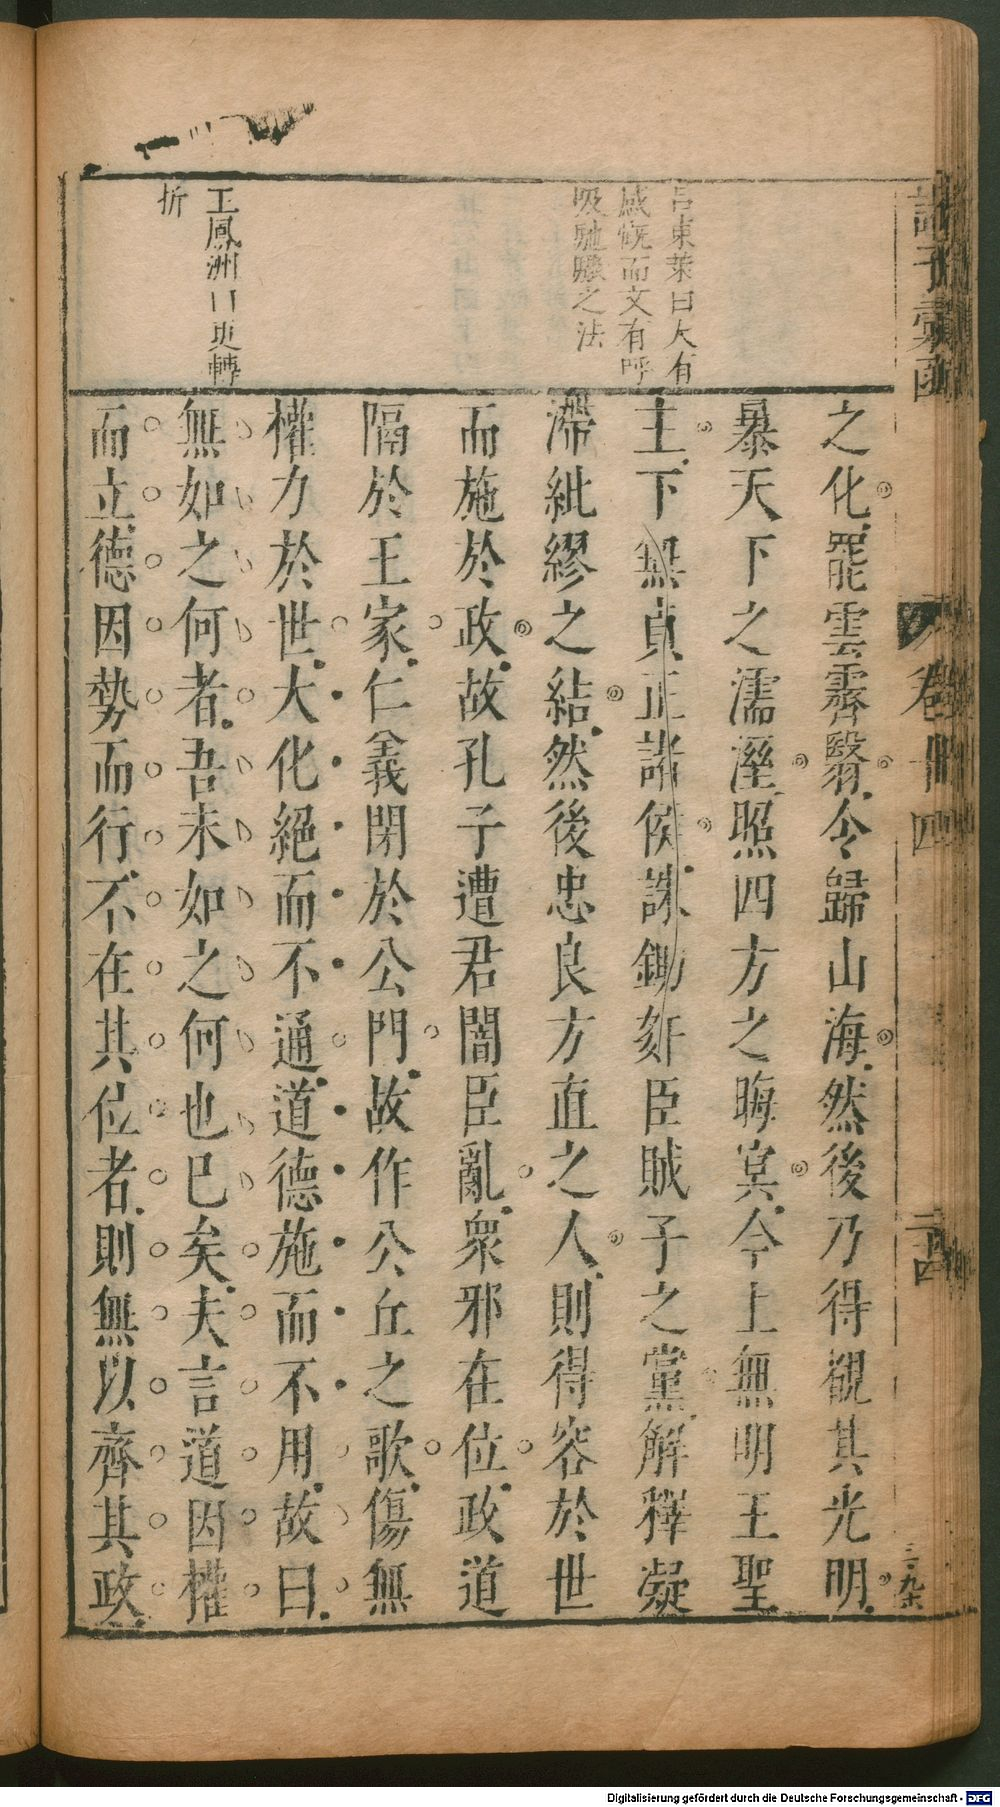 諸子彙函
卷卌四
二十四
呂東萊曰人有
感慨而文有呼
吸馳驟之法
王鳳洲曰更轉
折
之化罷雲霽翳令歸山海然後乃得覩其光明
暴天下之濡溼照四方之晦冥今上無明王聖
主下無貞正諸侯誅鋤奸臣賊子之黨解釋凝
滯紕繆之結然後忠良方直之人則得容於世
而施於政故孔子遭君闇臣亂衆邪在位政道
隔於王家仁義閉於公門故作公丘之歌傷無
權力於世大化絕而不通道德施而不用故曰
無如之何者吾未如之何也已矣夫言道因權
而立德因勢而行不在其位者則無以齊其政
Digitalisierung gefördert durch die Deutsche Forschungsgemeinschaft - DFG